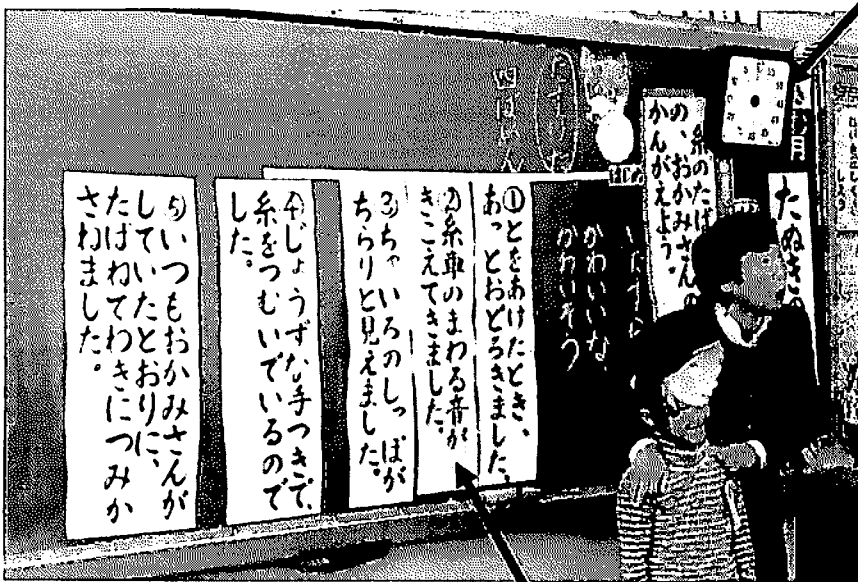 たぬきの
糸のたば
の、おかみさんの
かんがえよう。
はじめ
かわいいな
かわいそう
①とをあけたとき、
あっとおどろきました。
②糸車のまわる音が
きこえてきました。
③ちゃいろのしっぽが
ちらりと見えました。
④じょうずな手つきで、
糸をつむいでいるので
した。
⑤いつもおかみさんが
していたとおりに、
たばねてわきにつみか
さねました。